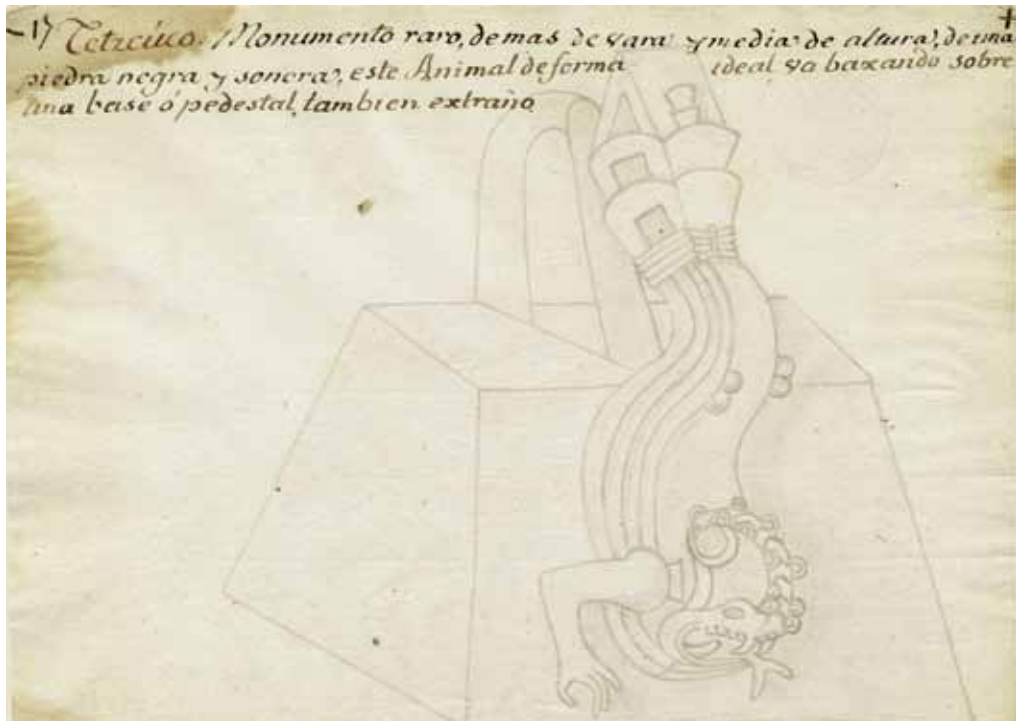 17 Tetzcuco. Monumento raro, de mas de vara y media de altura, de una
piedra negra y sonora, este Animal de forma ideal va baxando sobre
una base ó pedestal, tambien extraño